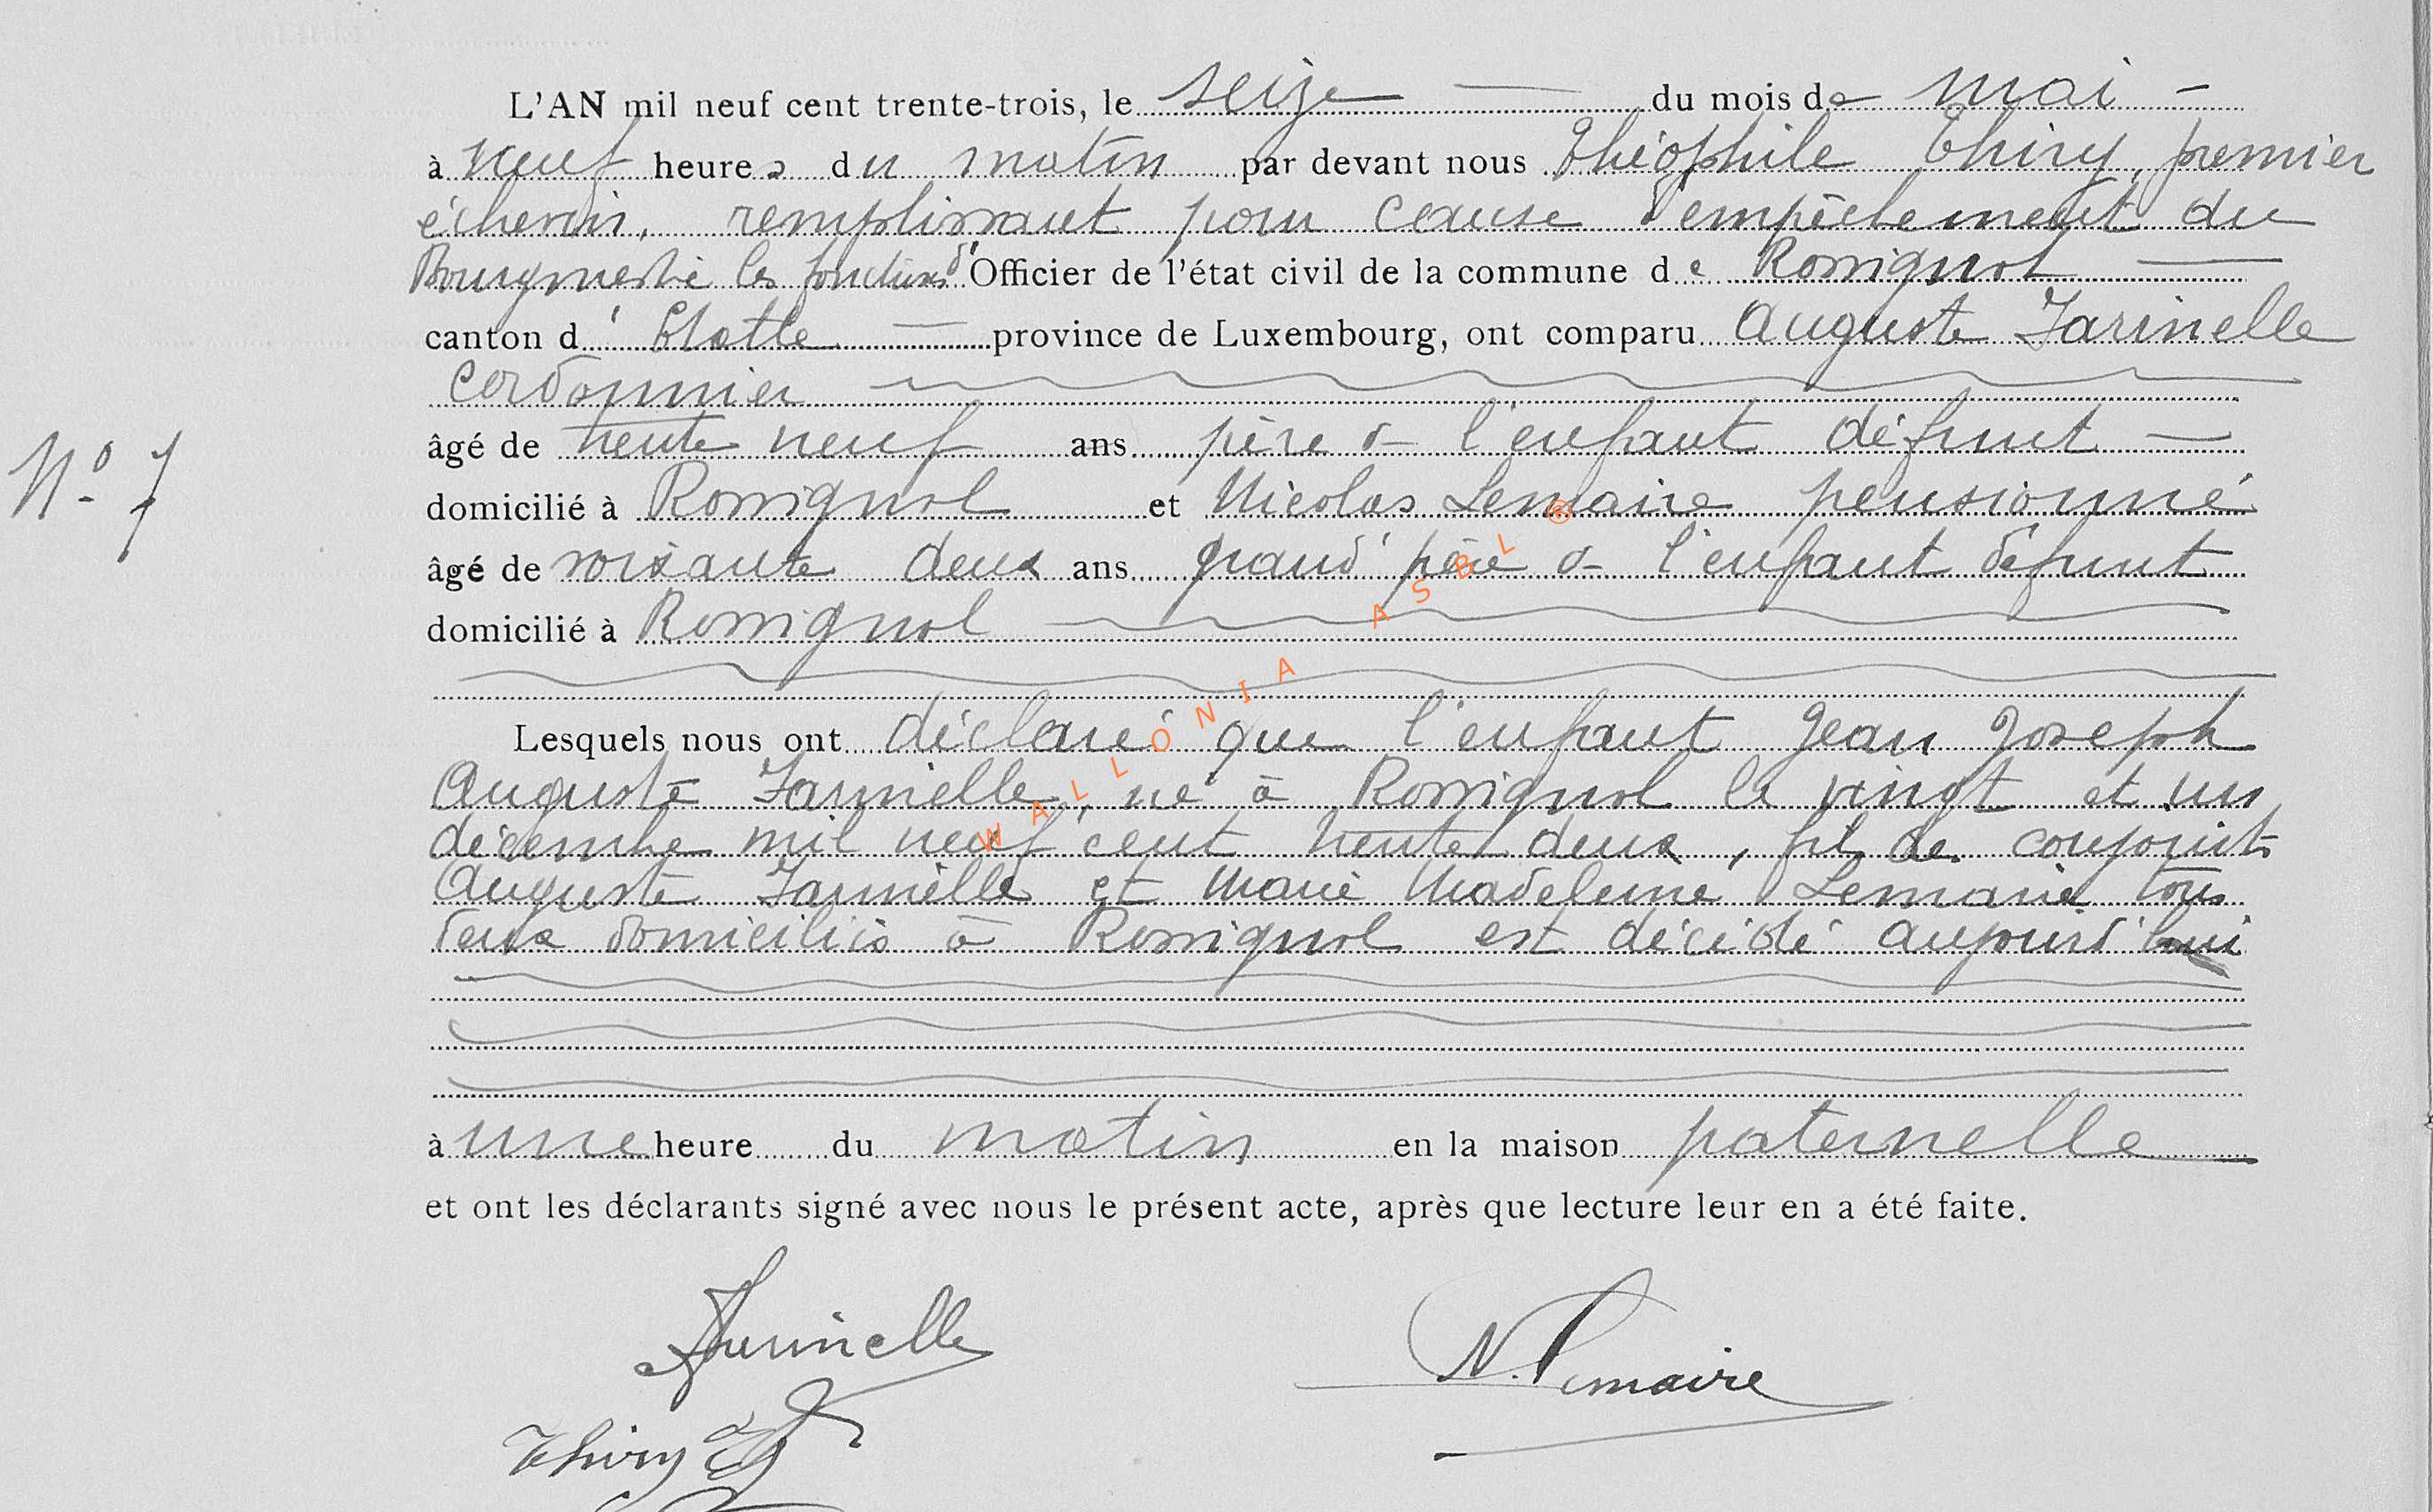 L'AN mil neuf cent trente-trois, le seize — du mois de mai —
à neuf heures du matin par devant nous Théophile Thiry, premier
échevin, remplissant pour cause d'empêchement du
Bourgmestre les fonctions d'Officier de l'état civil de la commune de Rossignol —
canton d'Etalle — province de Luxembourg, ont comparu Auguste Jarinelle
cordonnier
âgé de trente neuf ans père de l'enfant défunt —
N° 7
domicilié à Rossignol et Nicolas Lemaire pensionné
âgé de soixante deux ans grand'père de l'enfant défunt
domicilié à Rossignol
Lesquels nous ont déclaré que l'enfant Jean Joseph
Auguste Jarinelle, né à Rossignol le vingt et un
décembre mil neuf cent trente deux, fils de conjoints
Auguste Jarinelle et Marie Madeleine Lemaire tous
deux domiciliés à Rossignol est décédé aujourd'hui
à une heure du matin en la maison paternelle
et ont les déclarants signé avec nous le présent acte, après que lecture leur en a été faite.
Jarinelle N. Lemaire
Thiry
WALLONIA ASBL ®